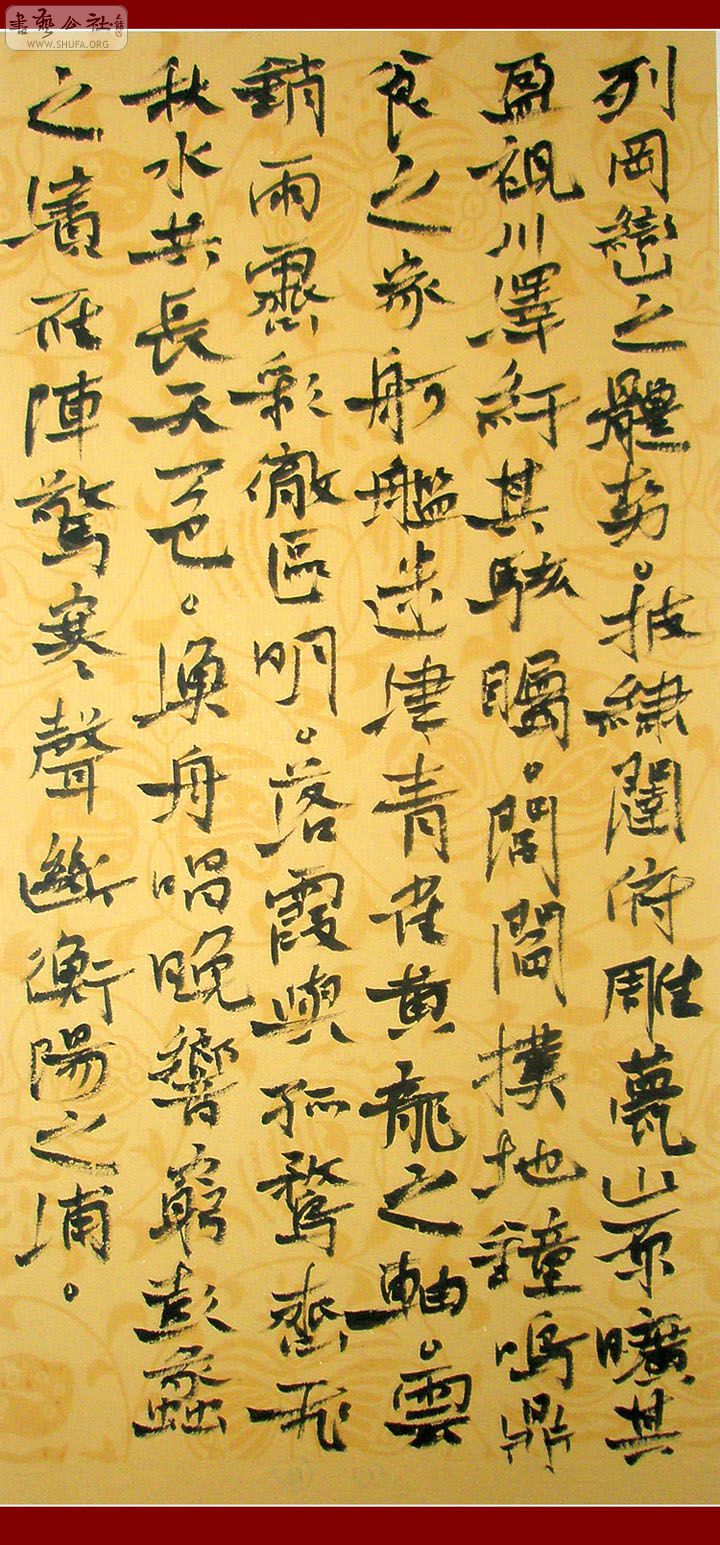 列岡巒之體勢。披繡闥俯雕甍山原曠其
盈視川澤紆其駭矚。閭閻撲地鐘鳴鼎
食之家舸艦迷津青雀黃龍之軸。雲
銷雨霽彩徹區明。落霞與孤鶩齊飛
秋水共長天一色。漁舟唱晚響窮彭蠡
之濱雁陣驚寒聲斷衡陽之浦。
書藝公社
WWW.SHUFA.ORG